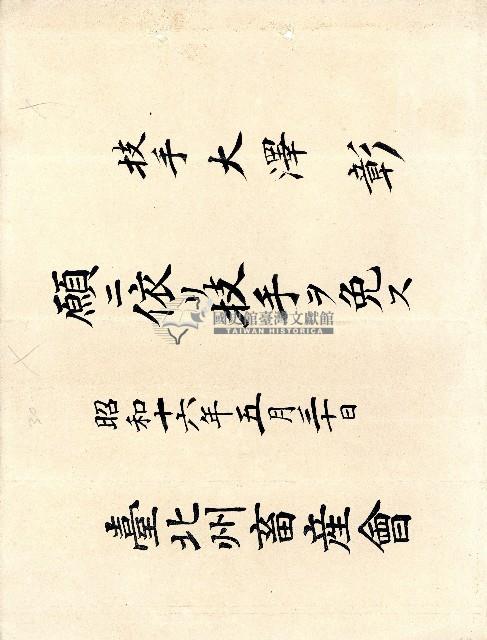 技手 大澤 彰
願ニ依リ技手ヲ免ス
昭和十六年五月三十日
臺北州畜産會
國史館臺灣文獻館
TAIWAN HISTORICA
30